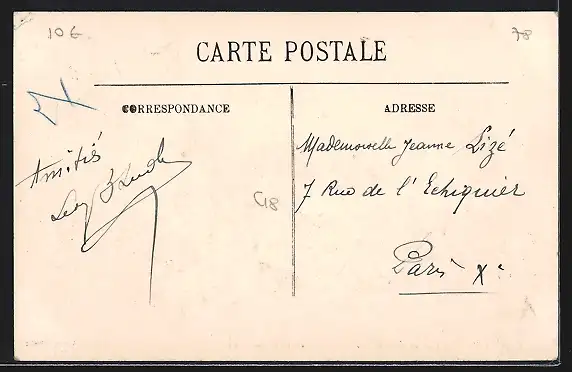 10 €
78
CARTE POSTALE
CORRESPONDANCE
ADRESSE
Amitiés
Mademoiselle Jeanne Lizé
7 Rue de l'Echiquier
C18
Paris Xe